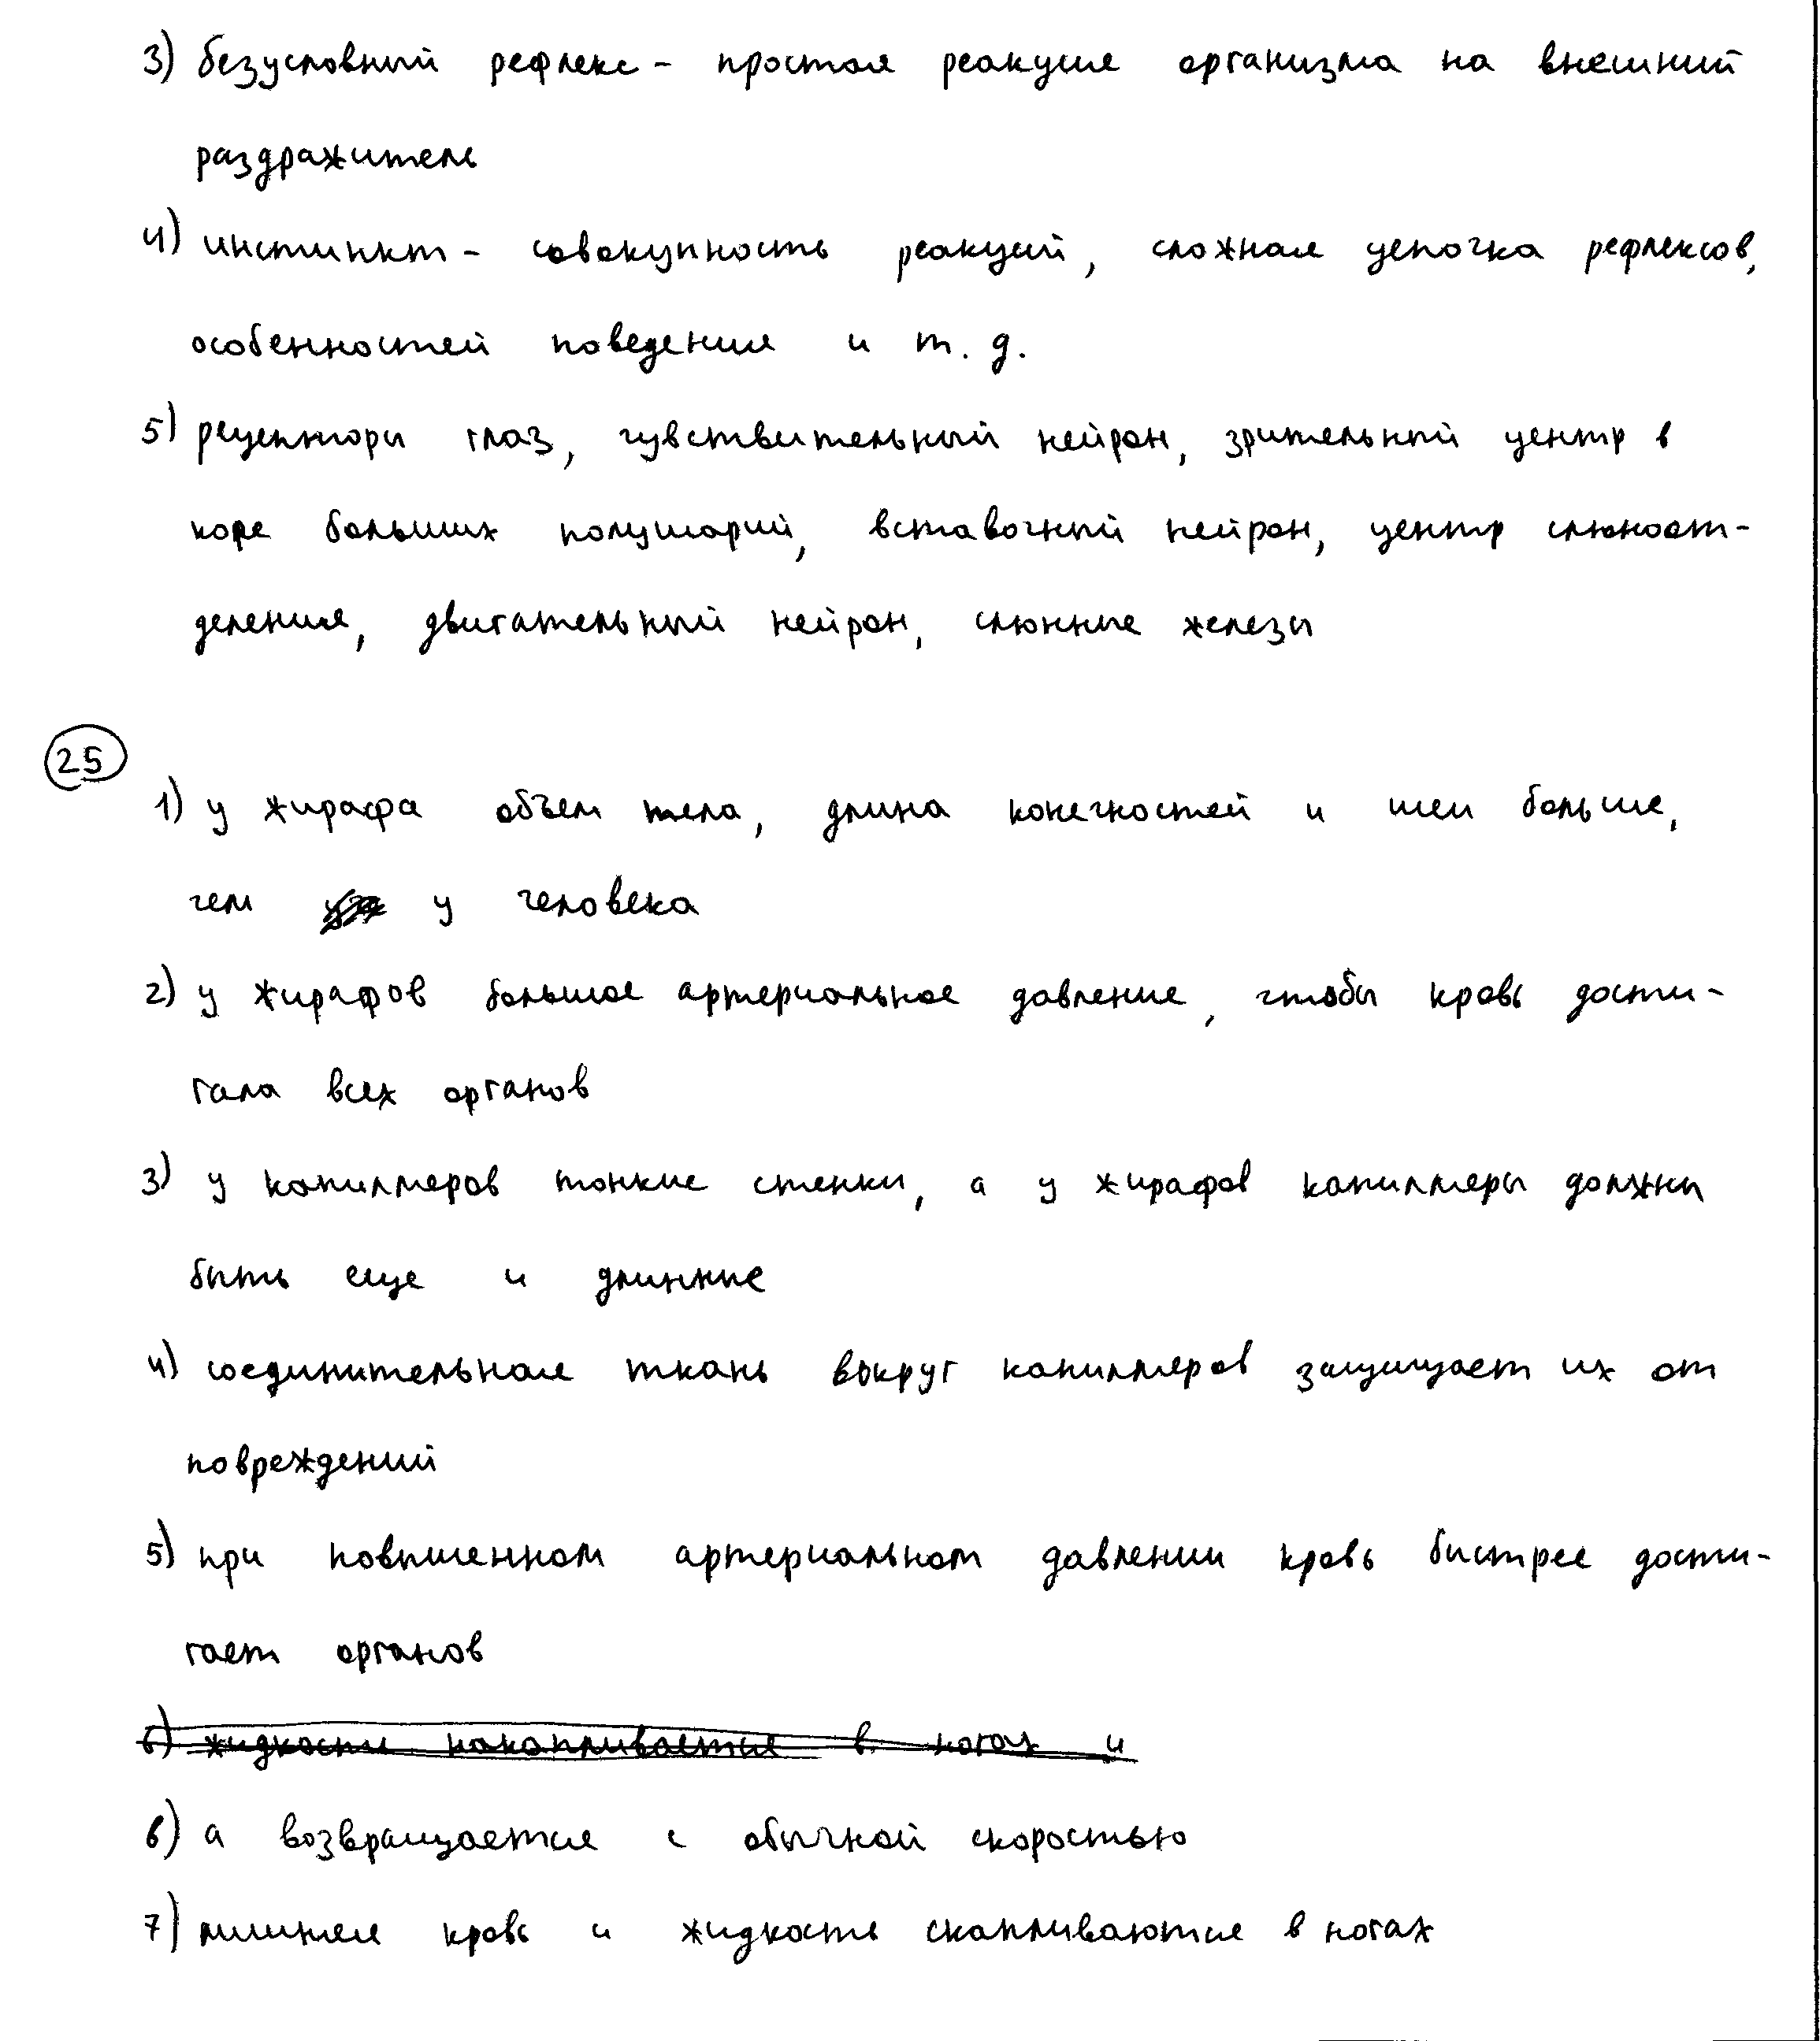 3) безусловный рефлекс - простая реакция организма на внешний
раздражитель
4) инстинкт - совокупность реакций, сложная цепочка рефлексов,
особенностей поведения и т. д.
5) рецепторы глаз, чувствительный нейрон, зрительный центр в
коре больших полушарий, вставочный нейрон, центр слюноот-
деления, двигательный нейрон, слюнные железы
25
1) у жирафа объем тела, длина конечностей и шеи больше,
чем у человека
2) у жирафов большое артериальное давление, чтобы кровь дости-
гала всех органов
3) у капилляров тонкие стенки, а у жирафов капилляры должны
быть еще и длинные
4) соединительная ткань вокруг капилляров защищает их от
повреждений
5) при повышенном артериальном давлении кровь быстрее дости-
гает органов
6) жидкость накапливается в ногах и
6) а возвращается с обычной скоростью
7) лишняя кровь и жидкость скапливаются в ногах